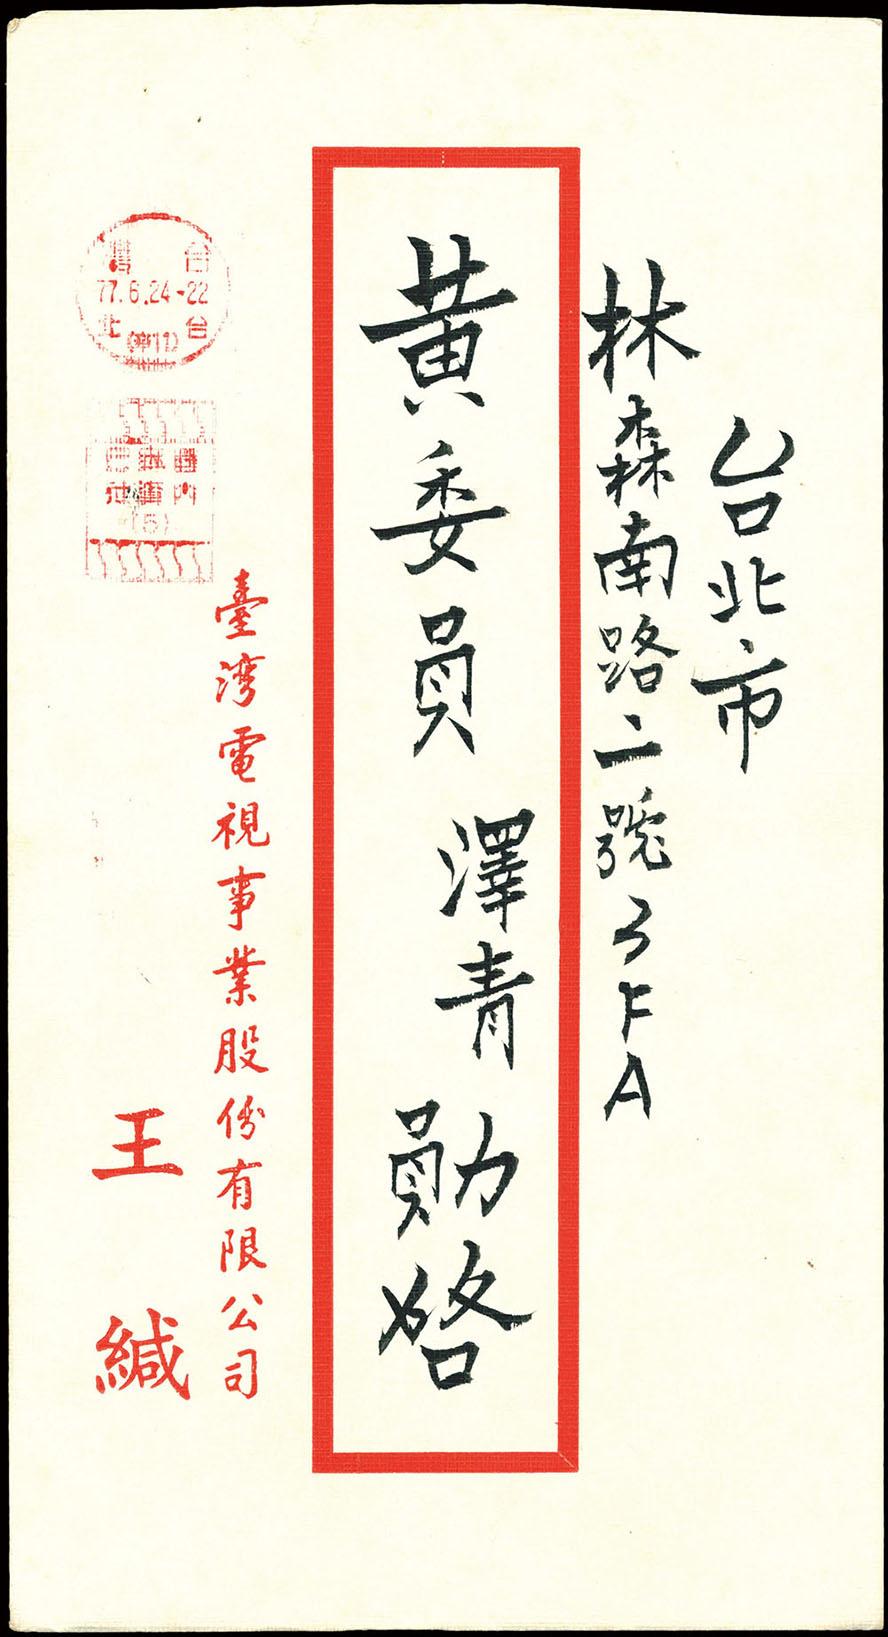 台北市
林森南路二號3FA
黃委員 澤青 勛啓
臺灣電視事業股份有限公司
王 緘
台灣
77.6.24-22
台北
國內
(5)